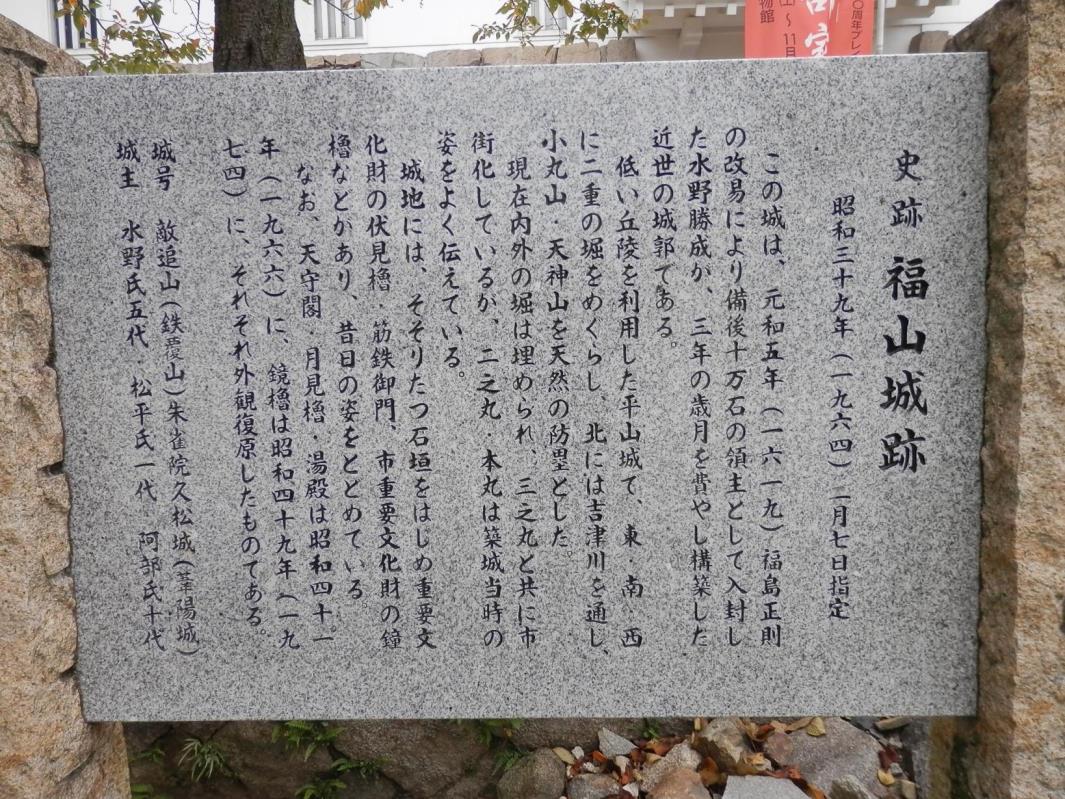 史跡 福山城跡
昭和三十九年（一九六四）二月七日指定
この城は、元和五年（一六一九）福島正則
の改易により備後十万石の領主として入封し
た水野勝成が、三年の歳月を費やし構築した
近世の城郭である。
低い丘陵を利用した平山城で、東・南・西
に二重の堀をめぐらし、北には吉津川を通し、
小丸山・天神山を天然の防塁とした。
現在内外の堀は埋められ、三之丸と共に市
街化しているが、二之丸・本丸は築城当時の
姿をよく伝えている。
城地には、そそりたつ石垣をはじめ重要文
化財の伏見櫓・筋鉄御門、市重要文化財の鐘
櫓などがあり、昔日の姿をとどめている。
なお、天守閣・月見櫓・湯殿は昭和四十一
年（一九六六）に、鏡櫓は昭和四十九年（一九
七四）に、それぞれ外観復原したものである。
城号 敵追山（鉄覆山）朱雀院久松城（葦陽城）
城主 水野氏五代・松平氏一代・阿部氏十代
〇周年プレイ
〜11月
物館